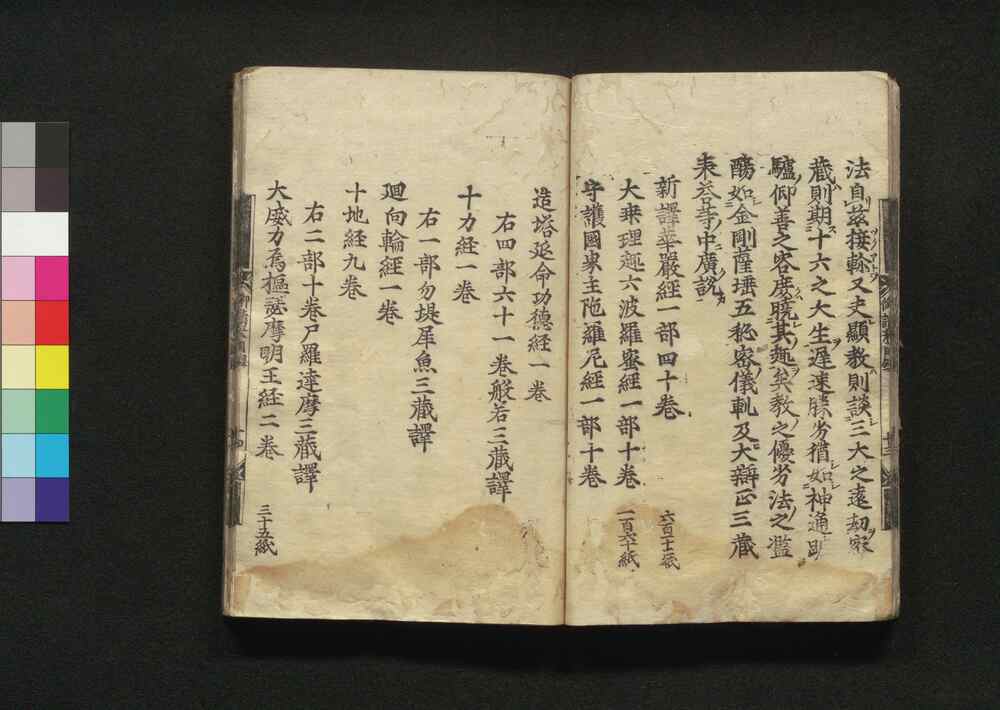 法自茲接軫又史顯教則談三大之遠劫密
藏則期十六之大生遲速勝劣猶如神通
驢仰善之客庶曉其趣矣教之優劣法之濫
觴如金剛薩埵五秘密儀軌及大辯正三藏
表答等中廣說
新譯華嚴經一部四十卷
大乘理趣六波羅蜜經一部十卷
守護國界主陁羅尼經一部十卷
造塔延命功德經一卷
右四部六十一卷般若三藏譯
十力經一卷
右一部勿提犀魚三藏譯
廻向輪經一卷
十地經九卷
右二部十卷尸羅達摩三藏譯
大威力烏摳瑟摩明王經二卷 三十五紙